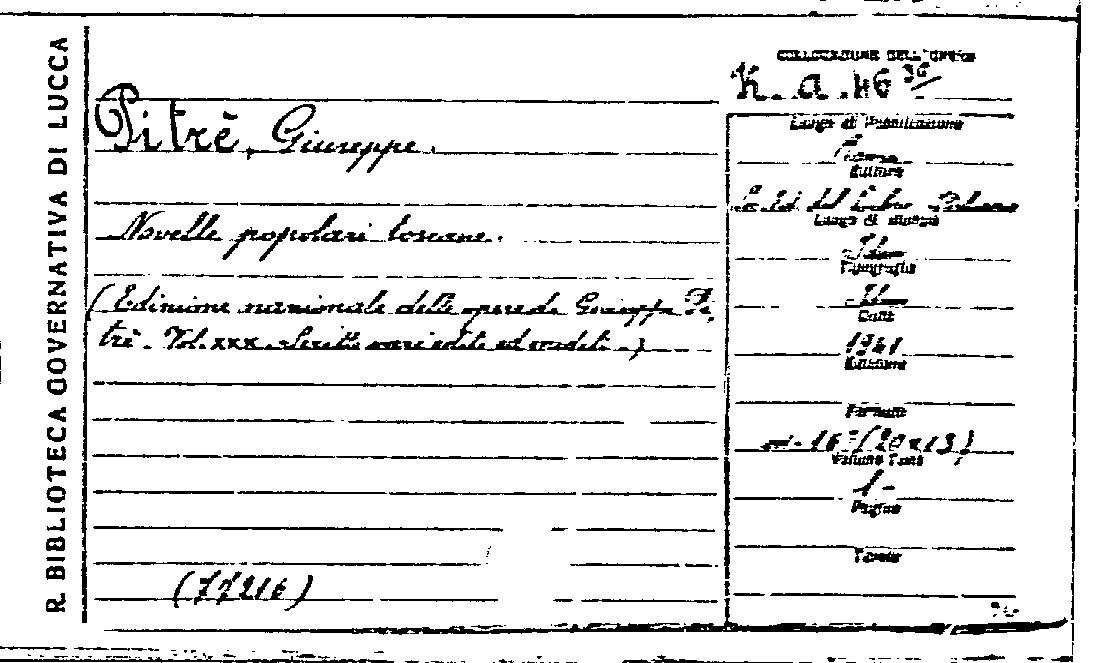 R. BIBLIOTECA GOVERNATIVA DI LUCCA
COLLOCAZIONE DELL'OPERA
K. a. 46 36
Pitrè, Giuseppe.
Novelle popolari toscane.
(Edizione nazionale delle opere di Giuseppe Pi-
trè. Vol. XXX. Scritti vari editi ed inediti.)
(77216)
Luogo di Pubblicazione
Editore
Luogo di stampa
Tipografia
Data
1941
Edizione
Formato
in-16° (20x13)
Volume Tomo
1-
Pagine
Tavole